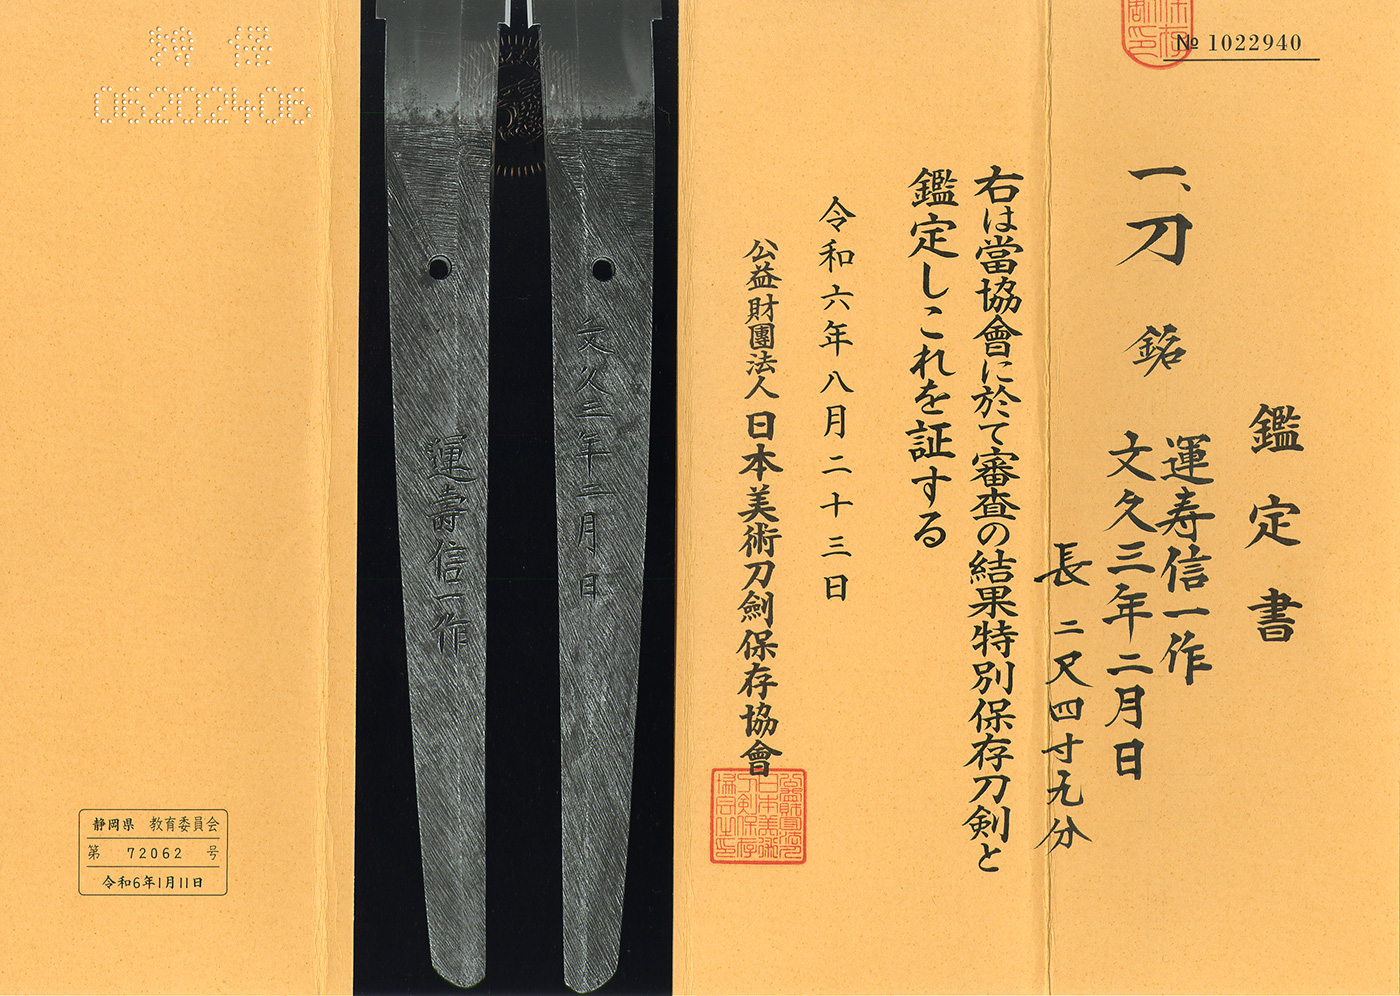 № 1022940
鑑定書
一、刀 銘 運寿信一作
文久三年二月日
長 二尺四寸九分
右は當協會に於て審査の結果特別保存刀剣と
鑑定しこれを証する
令和六年八月二十三日
公益財團法人 日本美術刀劍保存協會
文久三年二月日
運壽信一作
06202406
静岡県 教育委員会
第 72062 号
令和6年1月11日